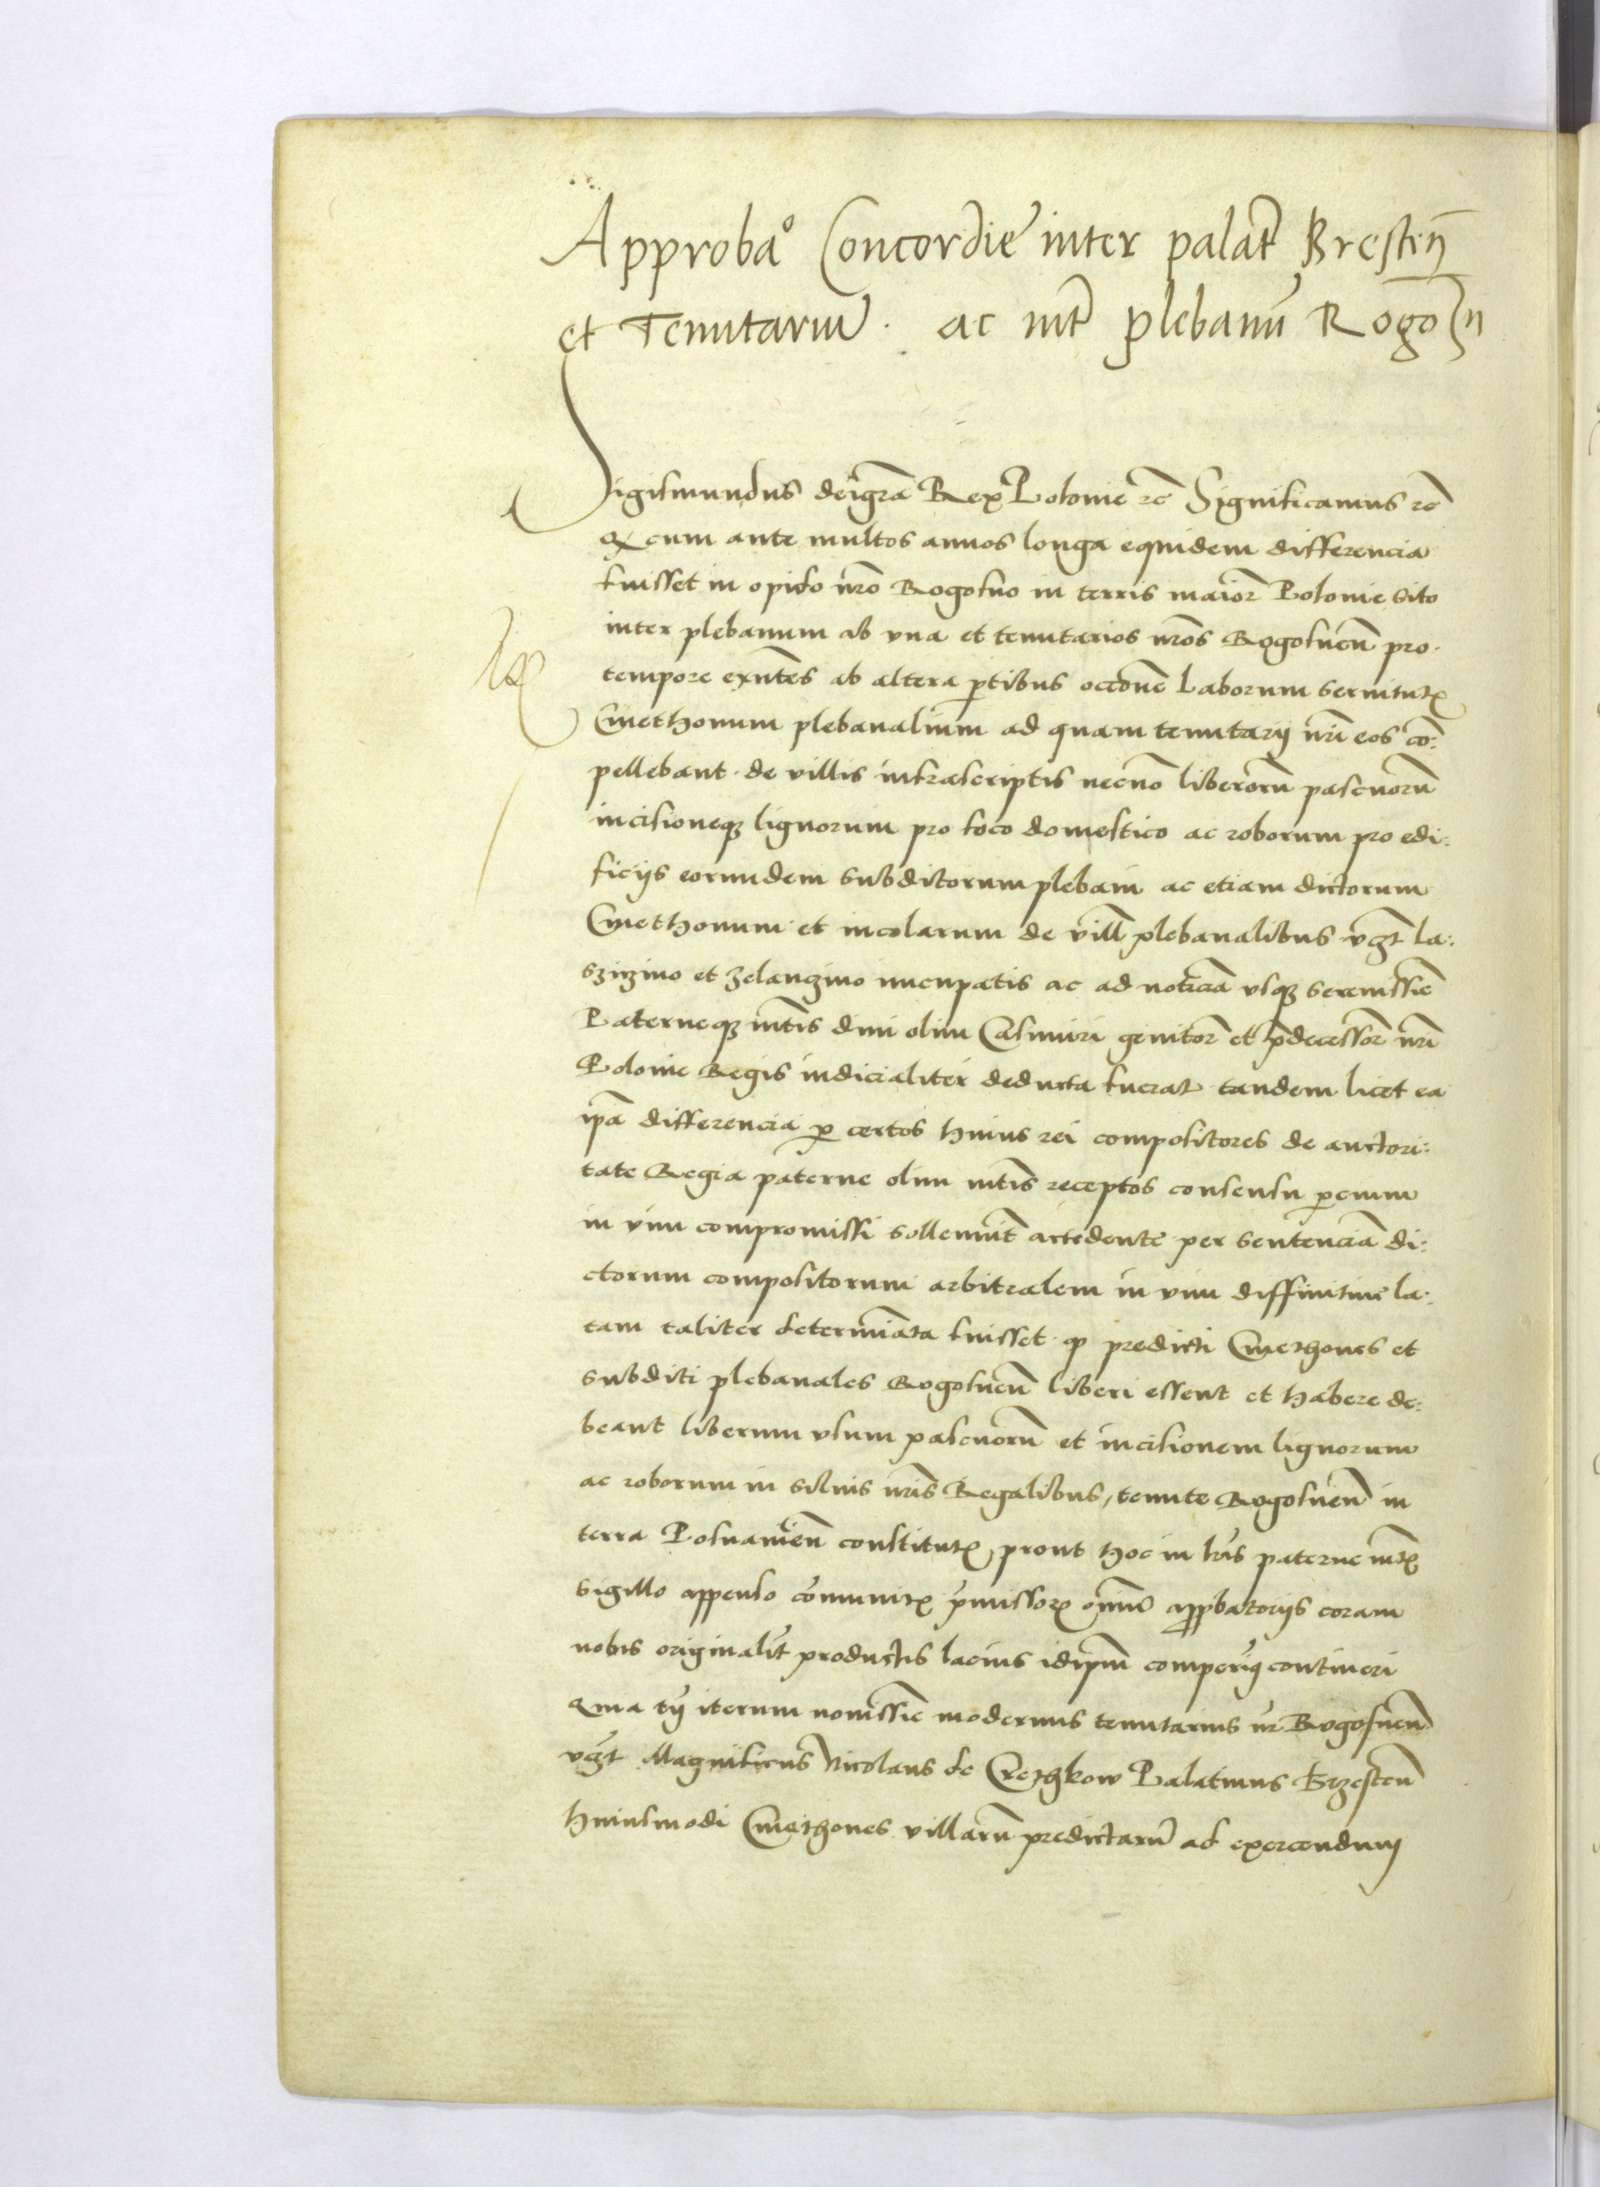 Approbaº Concordie inter palat̃ Bresteñ
et Tenutariũ . ac int̃ plebanũ Rogozñ
Sigismundus dei gr̃a Rex Polonie ꝛc̃ Significamus ꝛc̃
Qꝫ cum ante multos annos longa equidem differencia
fuisset in opido nr̃o Rogosno in terris maior̃ Polonie sito
inter plebanum ab vna et tenutarios nr̃os Rogosneñ pro
tempore exñtes ab altera p̱tibus occõne Laborum seruitutꝝ
Cmethonum plebanalium ad quam tenutarij nr̃i eos cõ:
pellebant de villis infrascriptis necnõ liberorũ pascuorũ
incisioneqꝫ lignorum pro foco domestico ac roborum pro edi:
ficijs eorundem subditorum plebani ac etiam dictorum
Cmethonum et incolarum de vill̃ plebanalibus vꝫt La:
szizino et Zelanzino nucupatis ac ad noticiã vsqꝫ serenissie͂
Paterneqꝫ mtĩs diui olim Casimiri genitor̃ et p̃decessor̃ nr̃i
Polonie Regis iudicialiter deducta fuerat tandem licet ea
ip̃a differencia ꝑ certos huius rei compositores de auctori:
tate Regia paterne olim mtĩs receptos consensu ꝑcium
in vim compromissi sollemnit̃ accedente per sentenciã di:
ctorum compositorum arbitralem in vim diffinitiue la:
tam taliter determinata fuisset ꝙ predicti Cmethones et
subditi plebanales Rogosneñ liberi essent et habere de:
beant liberum vsum pascuorũ et incisionem lignorum
ac roborum in siluis nr̃is Regalibus, tenute Rogosneñ in
terra Posnanieñ constitutꝝ, prout hoc in lr̃is paterne mtꝝ
sigillo appenso cõmunitꝝ p̃missorꝝ om̃iũ app̱batorijs coram
nobis originalit̃ productis lacius idip̃m comperiꝫ contineri
Quia tñ iterum nouissie͂ modernus tenutarius nr̃ Rogosneñ
vꝫt Magnificus Nicolaus de Crethkow Palatinus Brzesteñ
huiusmodi Cmethones villarũ predictarũ ad exercendum